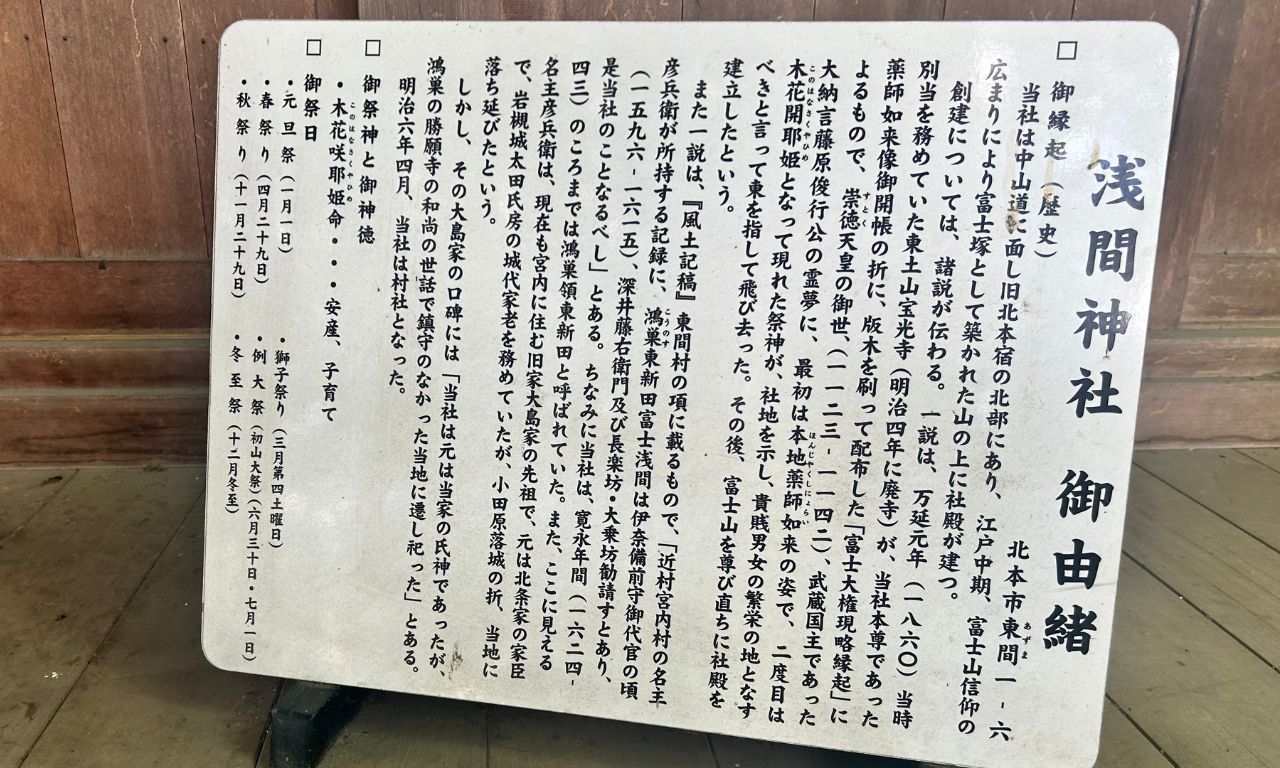 浅間神社 御由緒
北本市東間一-六
あずま
□ 御縁起（歴史）
当社は中山道に面し旧北本宿の北部にあり、江戸中期、富士山信仰の
広まりにより富士塚として築かれた山の上に社殿が建つ。
創建については、諸説が伝わる。一説は、万延元年（一八六〇）当時
別当を務めていた東土山宝光寺（明治四年に廃寺）が、当社本尊であった
薬師如来像御開帳の折に、版木を刷って配布した「富士大権現略縁起」に
よるもので、崇徳天皇の御世、（一一二三-一一四二）、武蔵国主であった
すとく
大納言藤原俊行公の霊夢に、最初は本地薬師如来の姿で、二度目は
ほんじやくしにょらい
木花開耶姫となって現れた祭神が、社地を示し、貴賎男女の繁栄の地となす
このはなさくやひめ
べきと言って東を指して飛び去った。その後、富士山を尊び直ちに社殿を
建立したという。
また一説は、『風土記稿』東間村の項に載るもので、「近村宮内村の名主
彦兵衛が所持する記録に、鴻巣東新田富士浅間は伊奈備前守御代官の頃
こうのす
（一五九六-一六一五）、深井藤右衛門及び長楽坊・大乗坊勧請すとあり、
是当社のことなるべし」とある。ちなみに当社は、寛永年間（一六二四-
四三）のころまでは鴻巣領東新田と呼ばれていた。また、ここに見える
名主彦兵衛は、現在も宮内に住む旧家大島家の先祖で、元は北条家の家臣
で、岩槻城太田氏房の城代家老を務めていたが、小田原落城の折、当地に
落ち延びたという。
しかし、その大島家の口碑には「当社は元は当家の氏神であったが、
鴻巣の勝願寺の和尚の世話で鎮守のなかった当地に遷し祀った」とある。
明治六年四月、当社は村社となった。
□ 御祭神と御神徳
・木花咲耶姫命・・・安産、子育て
このはなさくやひめ
□ 御祭日
・元旦祭（一月一日）
・獅子祭り（三月第四土曜日）
・春祭り（四月二十九日）
・例大祭（初山大祭）（六月三十日・七月一日）
・秋祭り（十一月二十九日）
・冬至祭（十二月冬至）